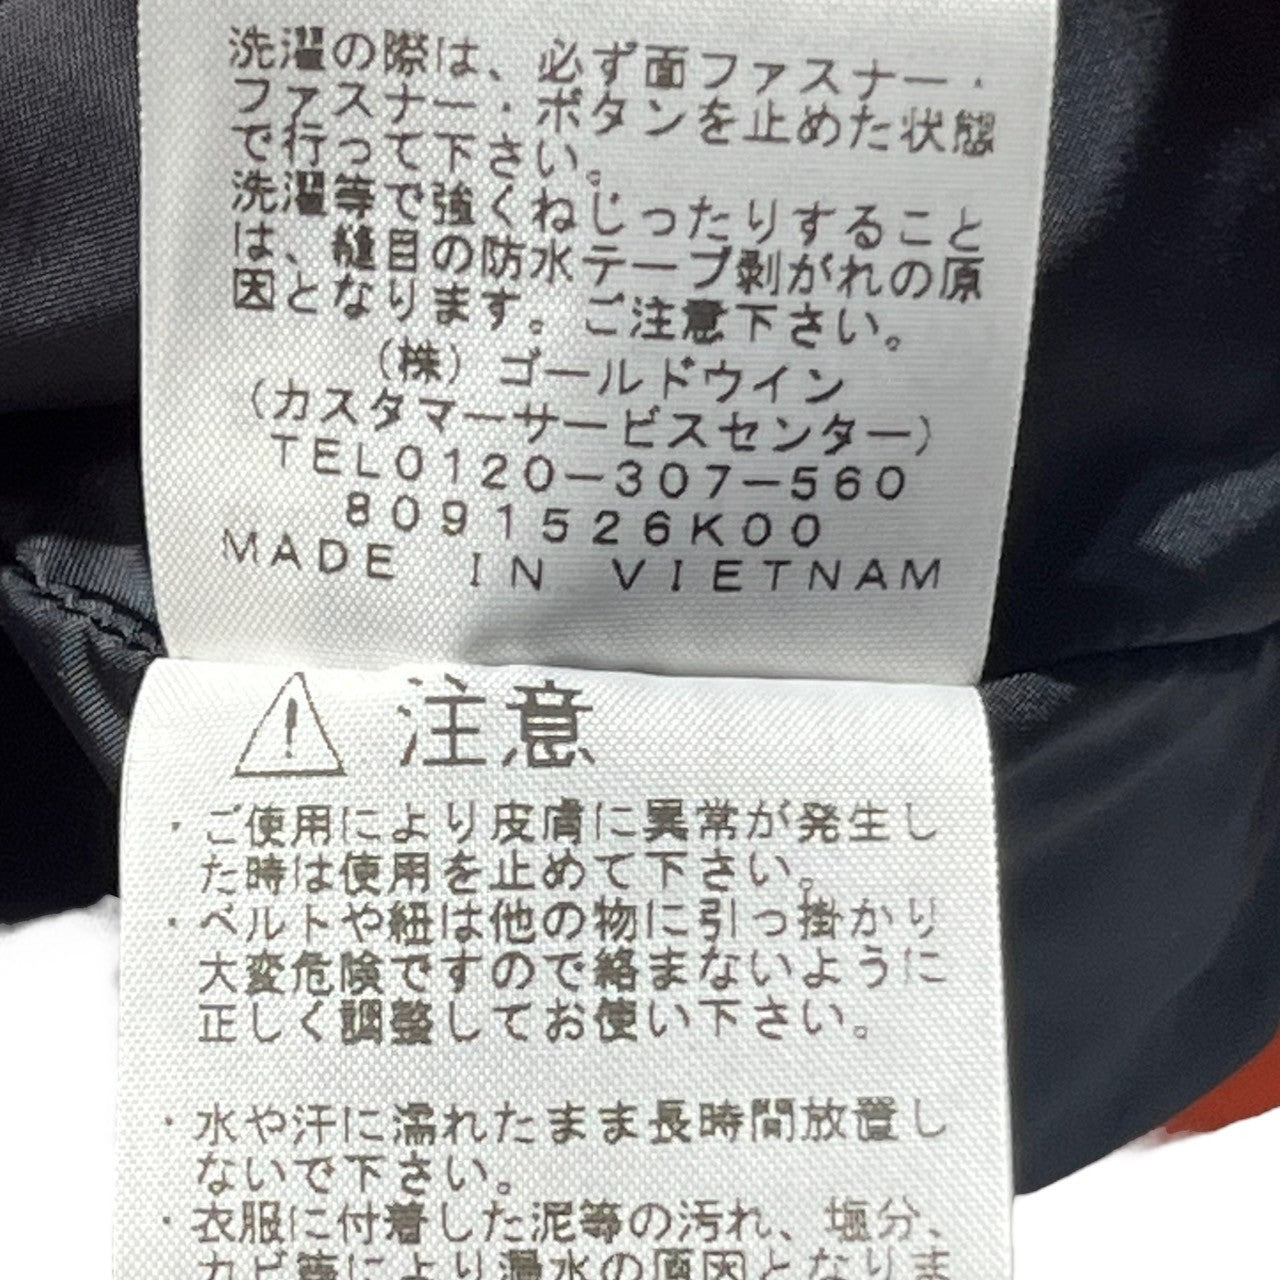 洗濯の際は、必ず面ファスナー・
ファスナー・ボタンを止めた状態
で行って下さい。
洗濯等で強くねじったりすること
は、縫目の防水テープ剥がれの原
因となります。ご注意下さい。
(株)ゴールドウイン
(カスタマーサービスセンター)
TEL0120-307-560
8091526K00
MADE IN VIETNAM
注意
・ご使用により皮膚に異常が発生し
た時は使用を止めて下さい。
・ベルトや紐は他の物に引っ掛かり
大変危険ですので絡まないように
正しく調整してお使い下さい。
・水や汗に濡れたまま長時間放置し
ないで下さい。
・衣服に付着した泥等の汚れ、塩分、
カビ等により漏水の原因となりま